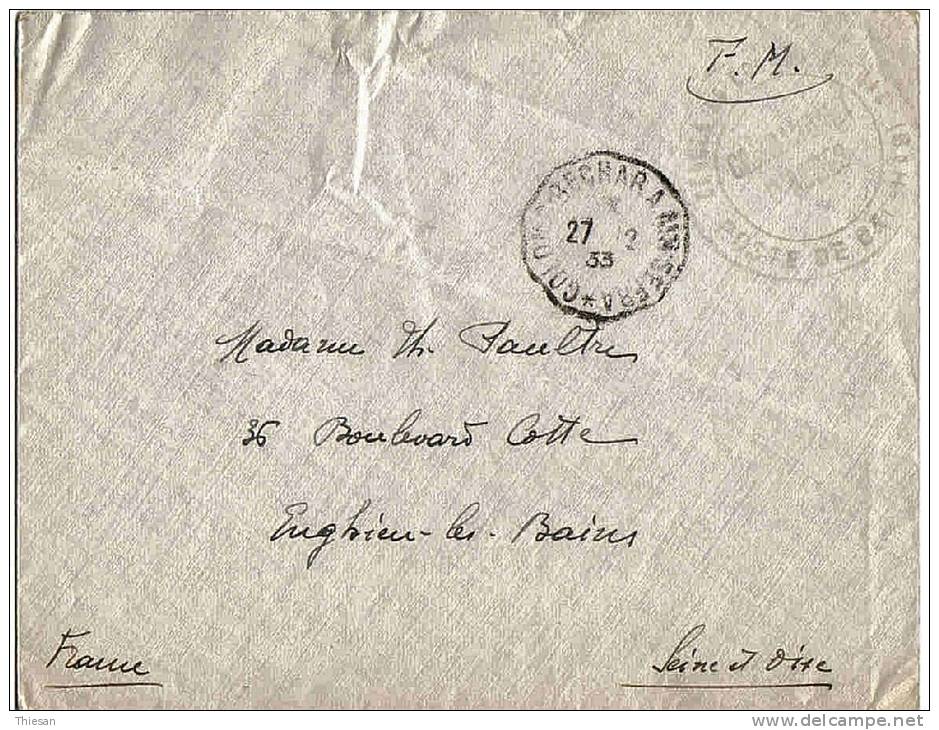 F. M.
COLOMB-BECHAR A AIN-SEFRA
27 2
33
POSTE DE
Madame Th. Paultre
36 Boulevard Cotte
Enghien-les-Bains
France
Seine et Oise
Thiesan
delcampe.net